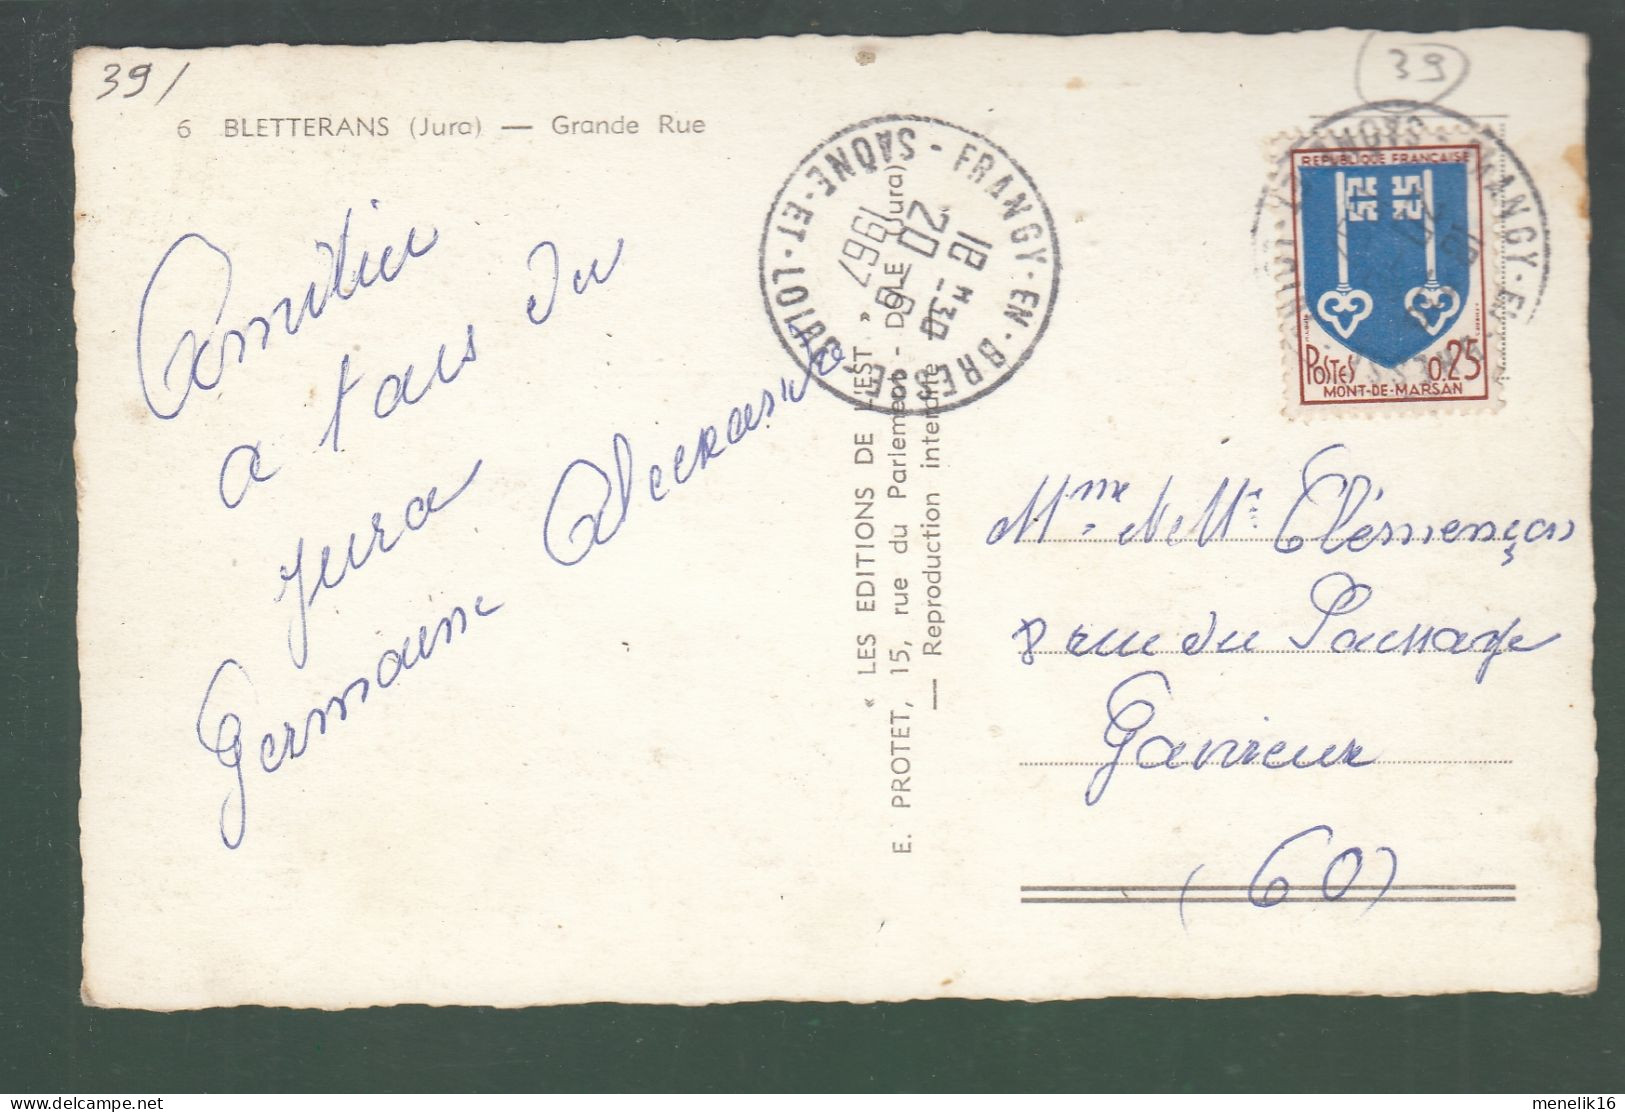 39/
(39)
6 BLETTERANS (Jura) — Grande Rue
Amitiés
a tous du
jura
Germaine
« LES EDITIONS DE L'EST »
E. PROTET, 15, rue du Parlement - DOLE (Jura)
— Reproduction interdite —
FRANGY-EN-BRESSE
SAÔNE-ET-LOIRE
18 H 30
20 - 6
1967
REPUBLIQUE FRANÇAISE
POSTES 0.25
MONT-DE-MARSAN
Mme Clémençon
8 rue du
Gouvieux
(60)
menelik16